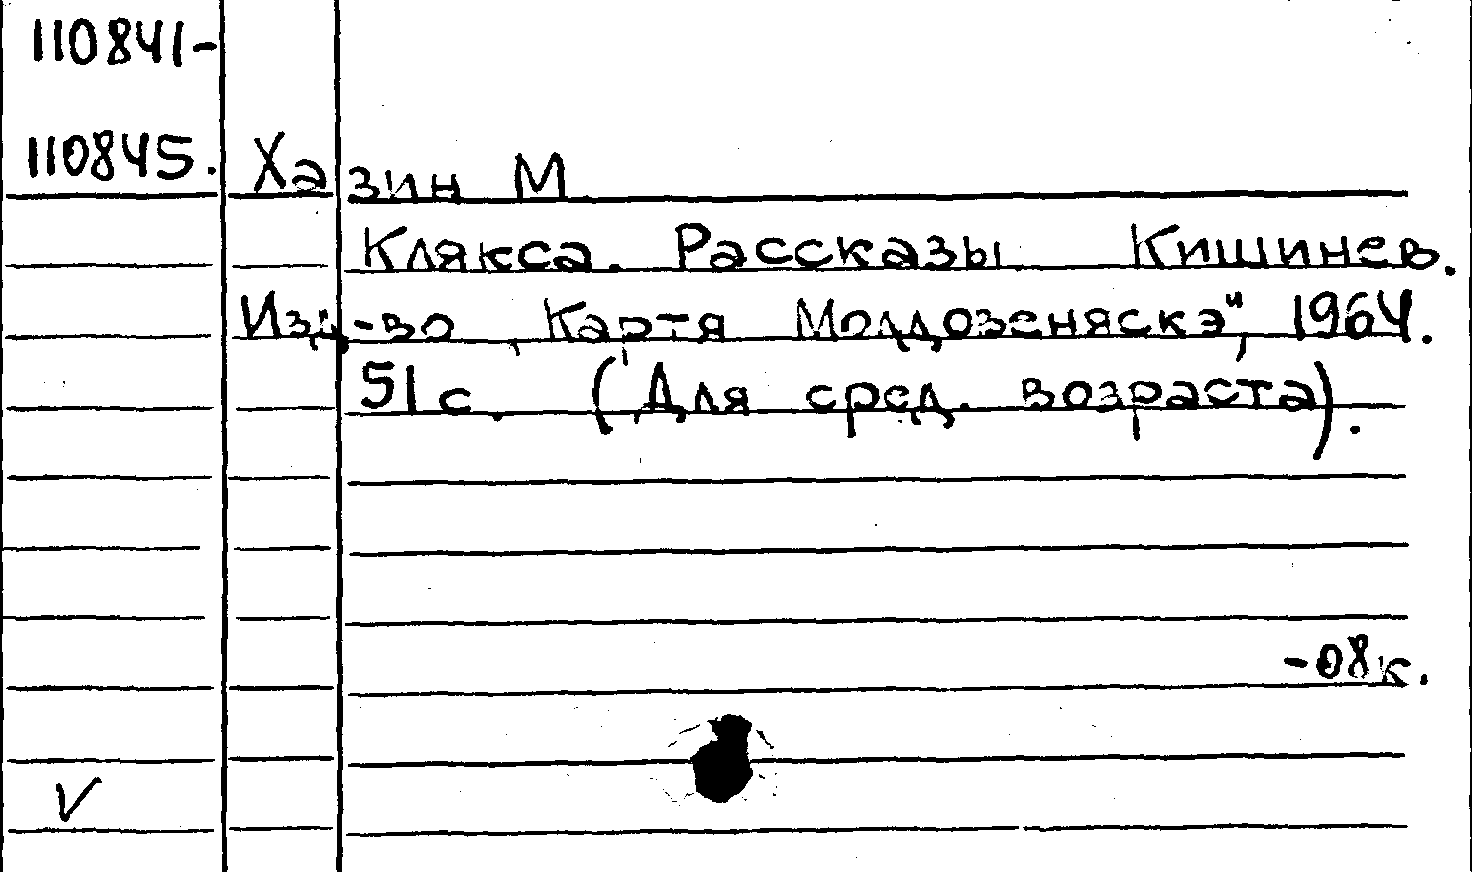 110841-
110845. Хазин М
Клякса. Рассказы Кишинев.
Изд-во „Картя Молдовеняскэ", 1964.
51 с. (Для сред. возраста).
-08к.